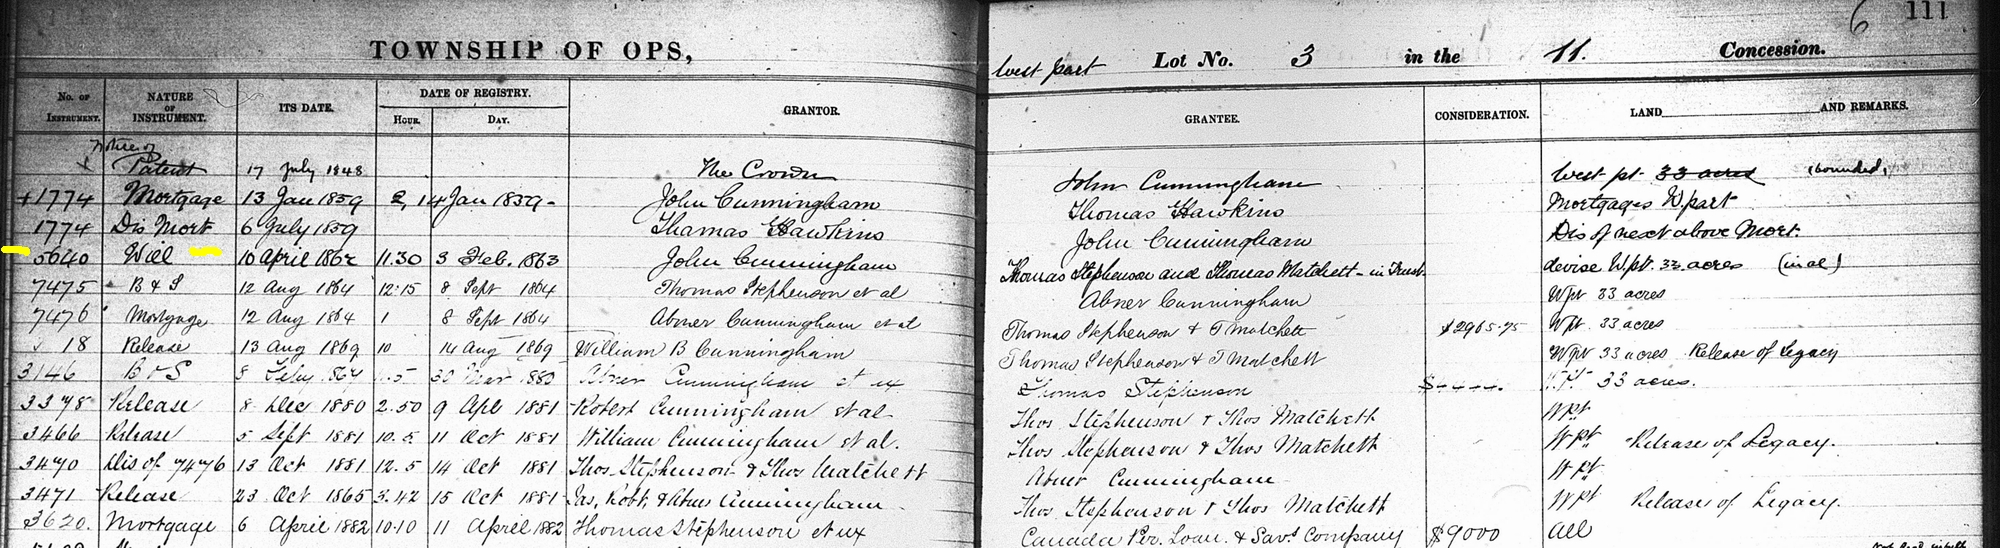 6 111
TOWNSHIP OF OPS, West part Lot No. 3 in the 11. Concession.
No. of Instrument. NATURE OF INSTRUMENT. ITS DATE. DATE OF REGISTRY. Hour. Day. GRANTOR. GRANTEE. CONSIDERATION. LAND AND REMARKS.
Notice of
Patent 17 July 1848 The Crown John Cunningham West pt. 33 acres (bounded)
1774 Mortgage 13 Jan 1859 2, 14 Jan 1859- John Cunningham Thomas Hawkins Mortgages W.part
1774 Dis Mort 6 July 1859 Thomas Hawkins John Cunningham Dis of next above Mort.
5640 Will 10 April 1862 11.30 3 Feb. 1863 John Cunningham Thomas Stephenson and Thomas Matchett - in Trust. devise W.pt. 33 acres (in al)
7475 B & S 12 Aug 1864 12.15 8 Sept 1864 Thomas Stephenson et al Abner Cunningham Wpt 33 acres
7476 Mortgage 12 Aug 1864 1 8 Sept 1864 Abner Cunningham et al Thomas Stephenson & T Matchett $2965.75 Wpt 33 acres
18 Release 13 Aug 1869 10 14 Aug 1869 William B Cunningham Thomas Stephenson & T Matchett Wpt 33 acres Release of Legacy
3146 B & S 1880 Abner Cunningham et ux Thomas Stephenson $---- 33 acres.
3378 Release 8 Dec 1880 2.50 9 Apl 1881 Robert Cunningham et al Thos Stephenson & Thos Matchett Wpt
3466 Release 5 Sept 1881 10.5 11 Oct 1881 William Cunningham et al. Thos Stephenson & Thos Matchett Wpt Release of Legacy.
3470 Dis of 7476 13 Oct 1881 12.5 14 Oct 1881 Thos. Stephenson & Thos Matchett Abner Cunningham Wpt
3471 Release 23 Oct 1865 3.42 15 Oct 1881 Jas, Robt, & Abner Cunningham Thos Stephenson & Thos Matchett Wpt Release of Legacy.
3620. Mortgage 6 April 1882 10.10 11 April 1882 Thomas Stephenson et ux Canada Per. Loan. & Savs Company $9000 All